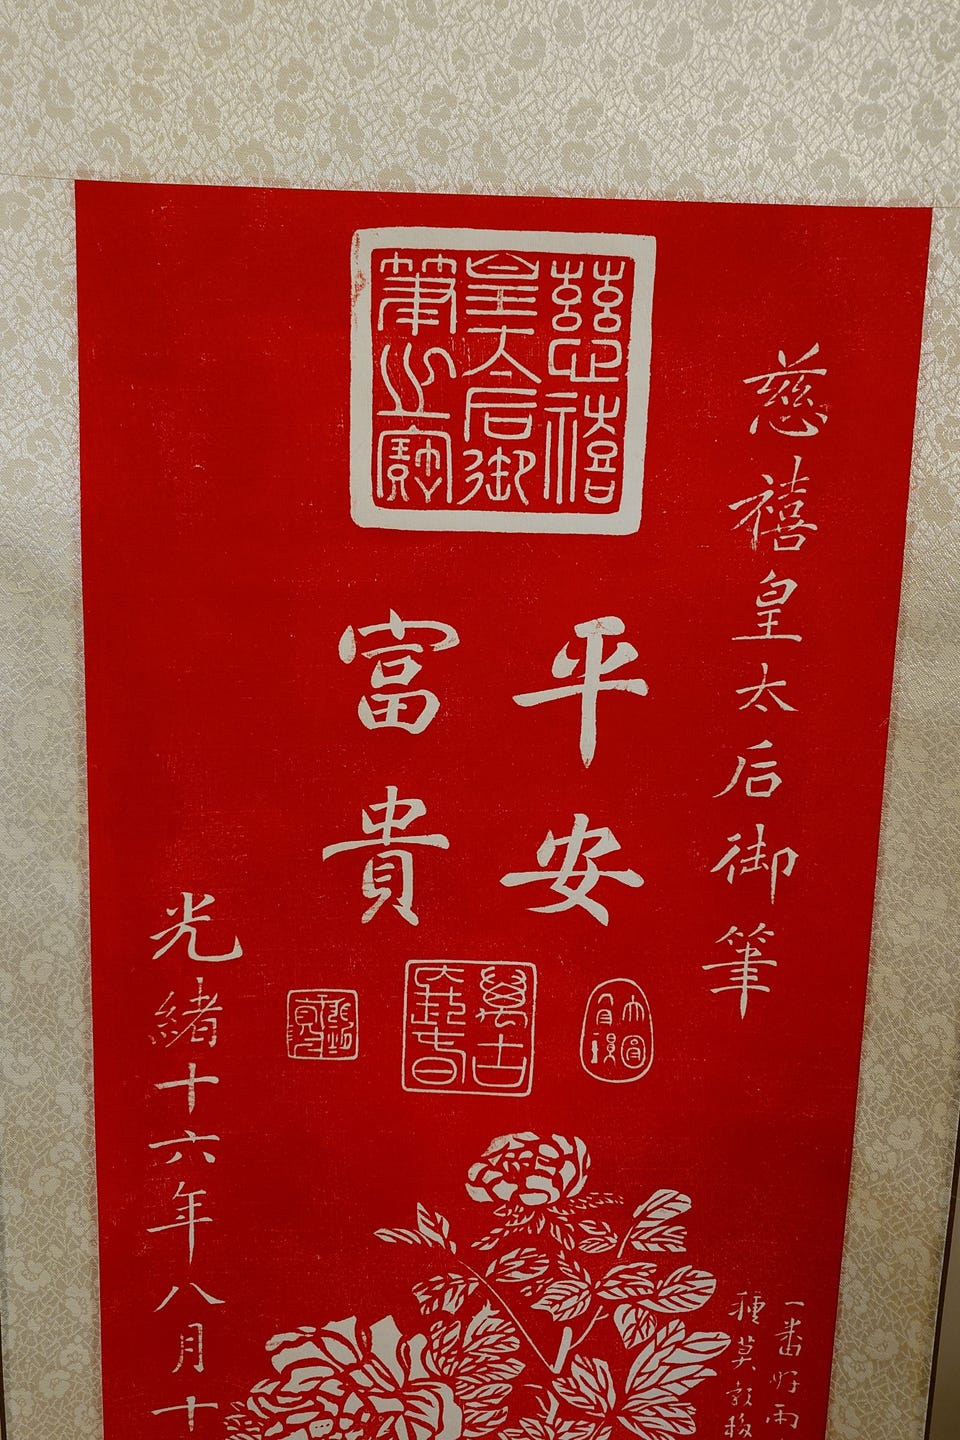 慈禧皇太后御筆之寶
慈禧皇太后御筆
平安
富貴
萬古
光緒十六年八月十
一番好雨
種莫